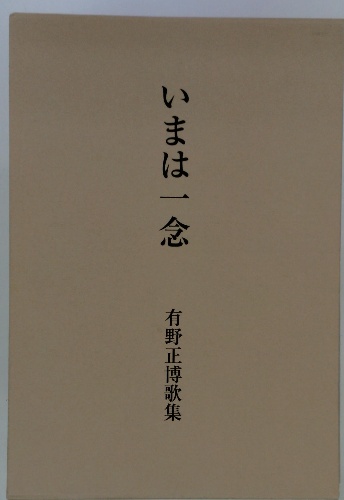 いまは一念
有野正博歌集